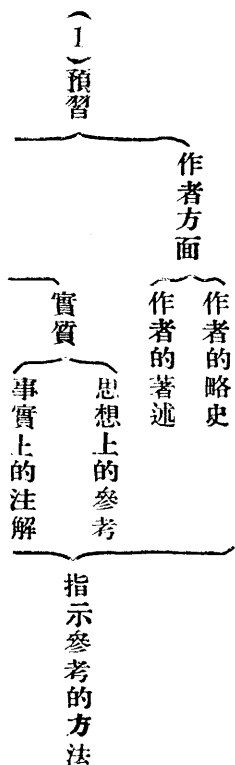 （1）預習
作者方面
作者的略史
作者的著述
實質
思想上的參考
事實上的注解
指示參考的方法